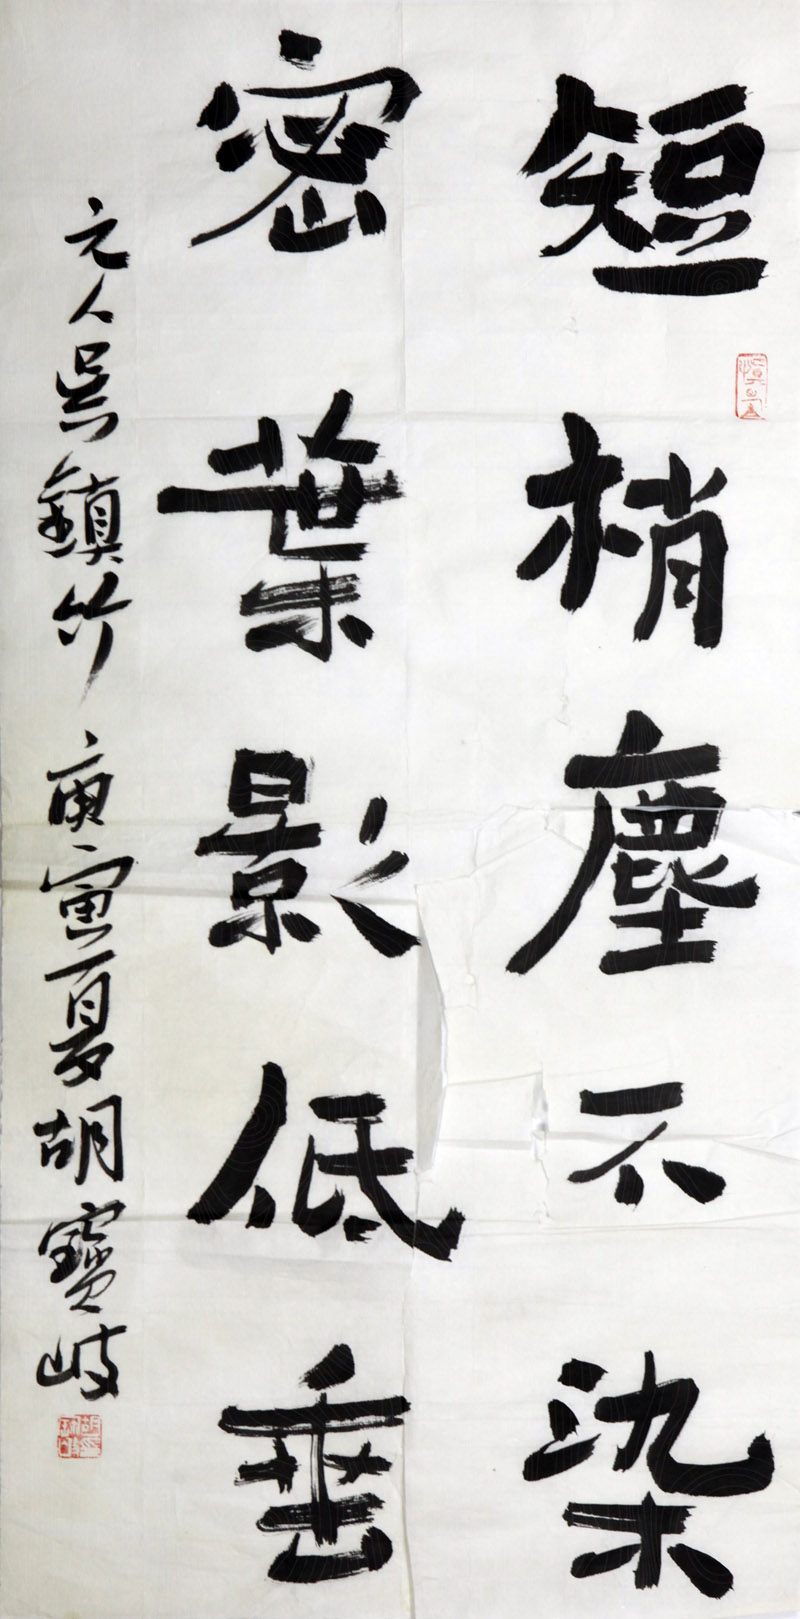 短梢塵不染
密葉影低垂
元人吳鎮竹 庚寅夏胡寶岐